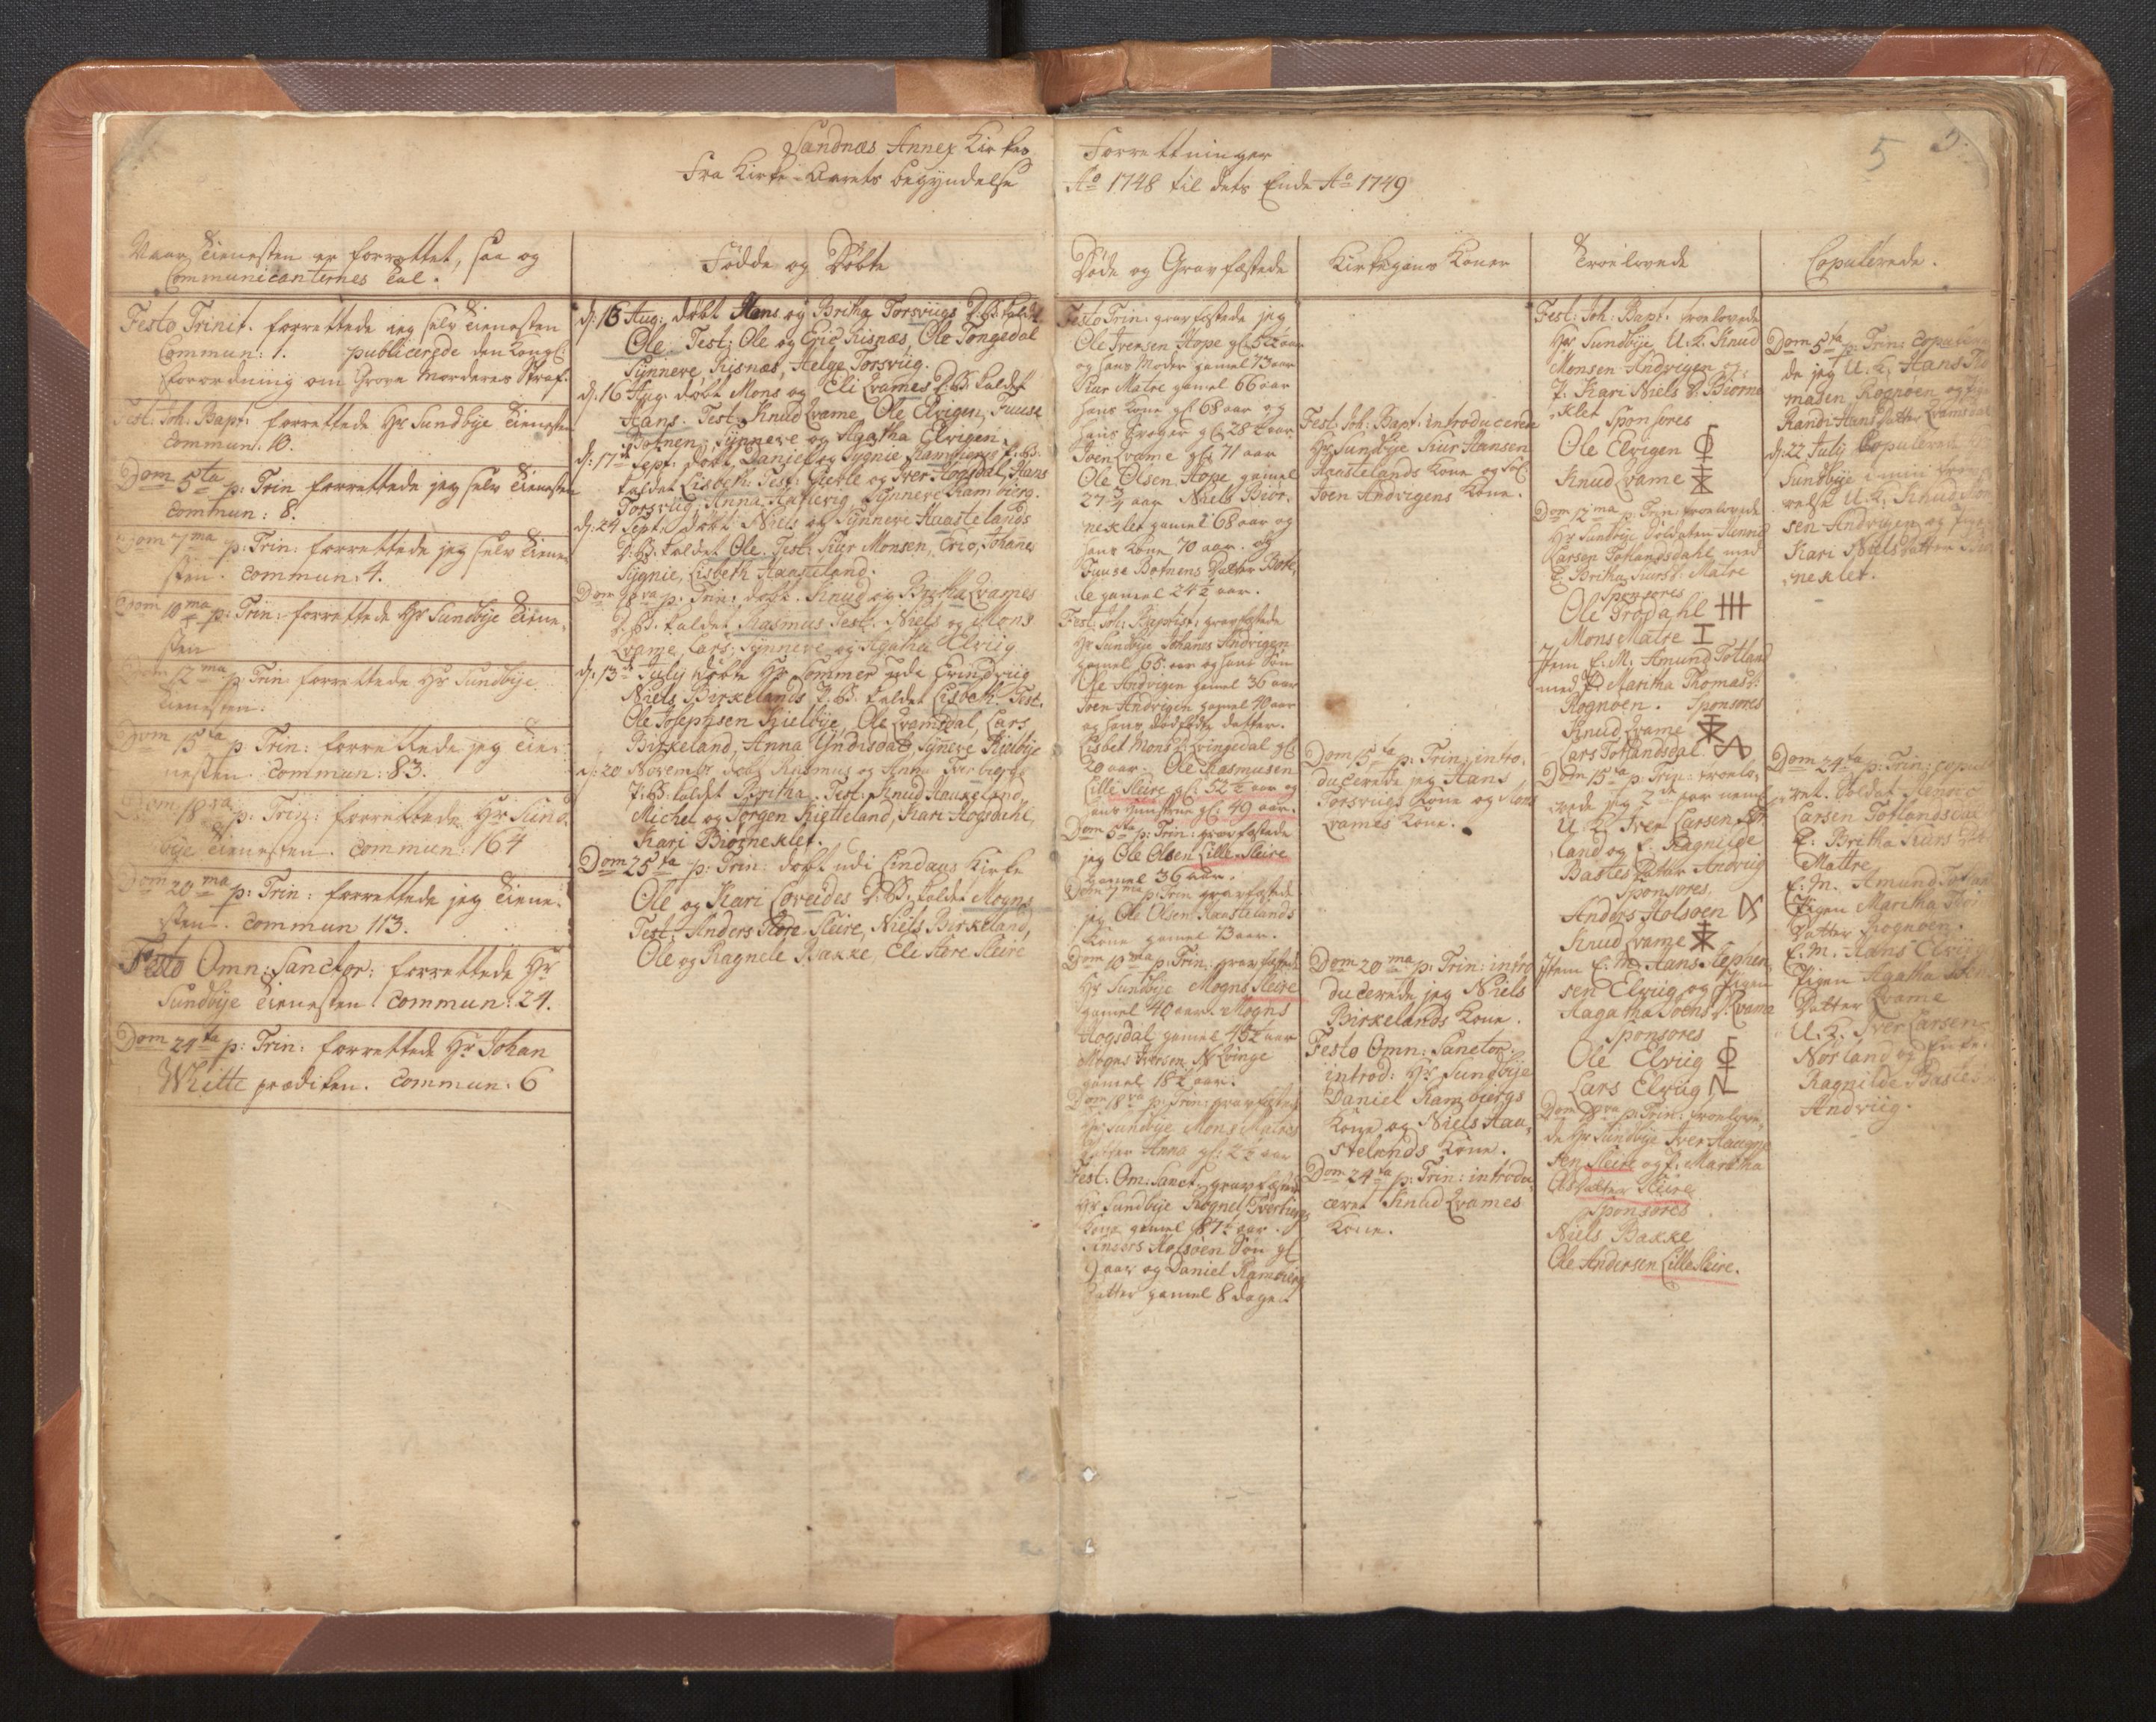 Sandnæs Annex Kirkes
Fra Kirke-Aarets begyndelse
Naar Tienesten er forrettet, saa og
Communicanternes Tal.
Festo Trinit. forrettede jeg selv Tienesten
Commun: 1. publicerede den Kongl:
Forordning om Grove Morderes Straf.
Fest: Joh: Bapt: forrettede Hr Sundbye Tienesten
Commun: 10.
Dom 5ta p: Trin forrettede jeg selv Tienesten
Commun: 8.
Dom 7ma p: Trin: forrettede jeg selv Tiene-
sten. Commun: 4.
Dom 10ma p: Trin: forrettede Hr Sundbije Tiene-
sten
Dom 12ma p: Trin forrettede Hr Sundbije
Tienesten.
Dom 15ta p Trin: forrettede jeg Tie-
nesten. Commun: 83.
Dom 18va p: Trin: forrettede Hr Sund-
bije Tienesten. Commun: 164
Dom 20ma p: Trin: forrettede jeg Tiene-
sten. Commun 113.
Festo Omn: Sanctor: forrettede Hr
Sundbije Tienesten. Commun: 24.
Dom 24ta p: Trin: forrettede Hr Johan
Witte prædiken. Commun: 6
Fødde og Døbte
d: 16 Aug: døbt Hans og Britha Torsviigs D: B: kaldet
Ole. Test: Ole og Eric Risnæs, Ole Tongedal
Synneve Risnæs, Helge Torsviig.
d: 16 Aug. døbt Mons og Eli Qvames D: B: kaldet
Hans. Test: Knud Qvame, Ole Elvigen, Fuuse
Botnen, Synneve og Agatha Elvigen.
d: 17de Sept: døbt Daniel og Sygnie Rambiergs P: B:
kaldet Lisbeth: Test: Gierle og Iver Hogsdal, Hans
Torsviig, Anna Synneve Rambierg.
d: 24 Sept: døbt Niels og Synneve Haastelands
D: B: kaldet Ole. Test: Siur Monsen, Eric, Johanes
Sygnie, Lisbeth Haasteland.
Dom 18va p: Trin: døbt Knud og Britha Qvames
D: B: kaldet Rasmus Test: Niels og Mons
Qvame, Lars, Synneve og Agatha Elviig
d: 13de July døbte Hr Sommer udi Evindviig
Niels Birkelands P: B: kaldet Lisbeth. Test.
Ole Josephsen Kielbije, Ole Qvamsdal, Lars
Birkeland, Anna Yndisdal, Synneve Kielbije
d: 20 Novembr døbt Rasmus og Anna
P: B: kaldet Britha. Test: Knud Haukeland,
Michel og Jørgen Kielleland, Kari Hogsdahl,
Kari Biørneklet.
Dom 25ta p: Trin: døbt udi Lindaas Kirke
Ole og Kari Loveides D: B: kaldet Mogns
Test: Anders Store Sleire, Niels Birkeland,
Ole og Ragnele Bakke, Eli Store Sleire
Forrettninger
Ao 1748 til dets Ende Ao 1749
5
Døde og Gravfæstede
Festo Trin: gravfæstede jeg
Ole Iversen Hope gl: 52 aar
og hans Moder gamel 73 aar
Siur Matre gamel 66 aar
hans Kone gl: 68 aar og
hans gl: 28 aar
Joen Qvame gl: 71 aar
Ole Olsen Hope, gamel
27 3/4 aar Niels Biør-
neklet gamel 68 aar og
hans Kone 70 aar. og
Fuuse Botnens Datter
gamel 24 1/2 aar.
Fest: Joh: Baptist: gravfæstede
Hr Sundbije Johanes Andvigen
gamel 65 aar og hans Søn
Ole Andvigen gamel 36 aar
Joen Andvigen gamel 40 aar
og hans dødfødde datter.
Lisbet Mons D: Qvingedal gl:
20 aar. Ole Rasmusen
Lille Sleire gl: 52 1/2 aar og
hans gl: 49 aar.
Dom 5ta p: Trin: gravfæstede
jeg Ole Olsen Lille-Sleire
gamel 36 aar.
Dom 7ma p: Trin gravfæstede
jeg Ole Olsen Haastelands
Kone gamel 73 aar.
Dom 10ma p: Trin: gravfæstede
Hr Sundbije Mogns Sleire
gamel 40 aar. Mogns
Hogsdal gamel 45 1/2 aar
Mogns Iversen N. Qvinge
gamel 18 1/2 aar.
Dom 18va p: Trin: gravfæstede
Hr Sundbije Mons Matres
Datter Anna gl: 2 1/2 aar
Fest: Om: Sanct: gravfæstede
Hr Sundbije Rognel
Kone gamel 87 1/2 aar.
Anders Holsøen Søn gl
9 aar og Daniel Rambiergs
datter gamel 8 dage.
Kirkegangs Koner
Fest: Joh: Bapt: introducerede
Hr Sundbije Siur Hansen
Haastelands Kone og
Joen Andvigens Kone.
Dom 15ta p: Trin: intro-
ducerede jeg Hans
Torsviigs Kone og Mons
Qvames Kone.
Dom 20ma p: Trin: intro
ducerede jeg Niels
Birkelands Kone.
Festo Omn: Sanctor:
introd: Hr Sundbije
Daniel Rambiergs
Kone og Niels Haa-
stelands Kone.
Dom 24ta p: Trin: introdu-
ceret Knud Qvames
Kone.
Troelovede
Fest: Joh: Bapt: troelovede
Hr Sundbije U. K: Knud
Monsen Andvigen og
P. Kari Niels D: Biørne
klet Sponsores
Ole Elvigen
Knud Qvame
Dom 12ma p: Trin: troelovede
Hr Sundbije Soldaten Henric
Larsen Totlandsdahl med
E. Britha Siursd: Matre
Sponsores
Ole Trodahl
Mons Matre
Item E: M: Amund Totland
med P Maritha Thomasd:
Rognøen. Sponsores
Knud Qvame
Lars Totlandsdal
Dom 15ta p: Trin: troelo-
vede jeg 2de par neml:
U. K: Iver Larsen Nør
land og E. Ragnilde
Bastes Datter Andviig
Sponsores,
Anders Holsøen
Knud Qvame
Item E: M: Hans Stephen-
sen Elviig og Pigen
Aagatha Joens D: Qvame
Sponsores
Ole Elviig
Lars Elviig
Dom 18va p: Trin: troelove-
de Hr Sundbije Iver Haagne
sen Sleire og P. Maritha
Ols Datter Sleire
Sponsores
Niels Bakke
Ole Andersen Lille Sleire.
Copulerede.
Dom 5ta p: Trin: copulere
de jeg U. K: Hans
masen Rognøen og Pigen
Randi Hans Datter Qvamsdal
d: 22 July Copulerede
Sundbije i min
relse U. K: Knud Mon
sen Andvigen og Pigen
Kari Niels Datter Biør
neklet.
Dom 24ta p: Trin: copule
ret. Soldat Henric
Larsen Totlandsdal
E: Britha Siurs
Mattre
E: M. Amund Totland
Pigen Maritha
Datter Rognøen.
E: M. Hans Elviig
Pigen Agatha Joens
Datter Qvame
U. K. Iver Larsen
Nørland og Enke
Ragnilde Bastes
Andviig.